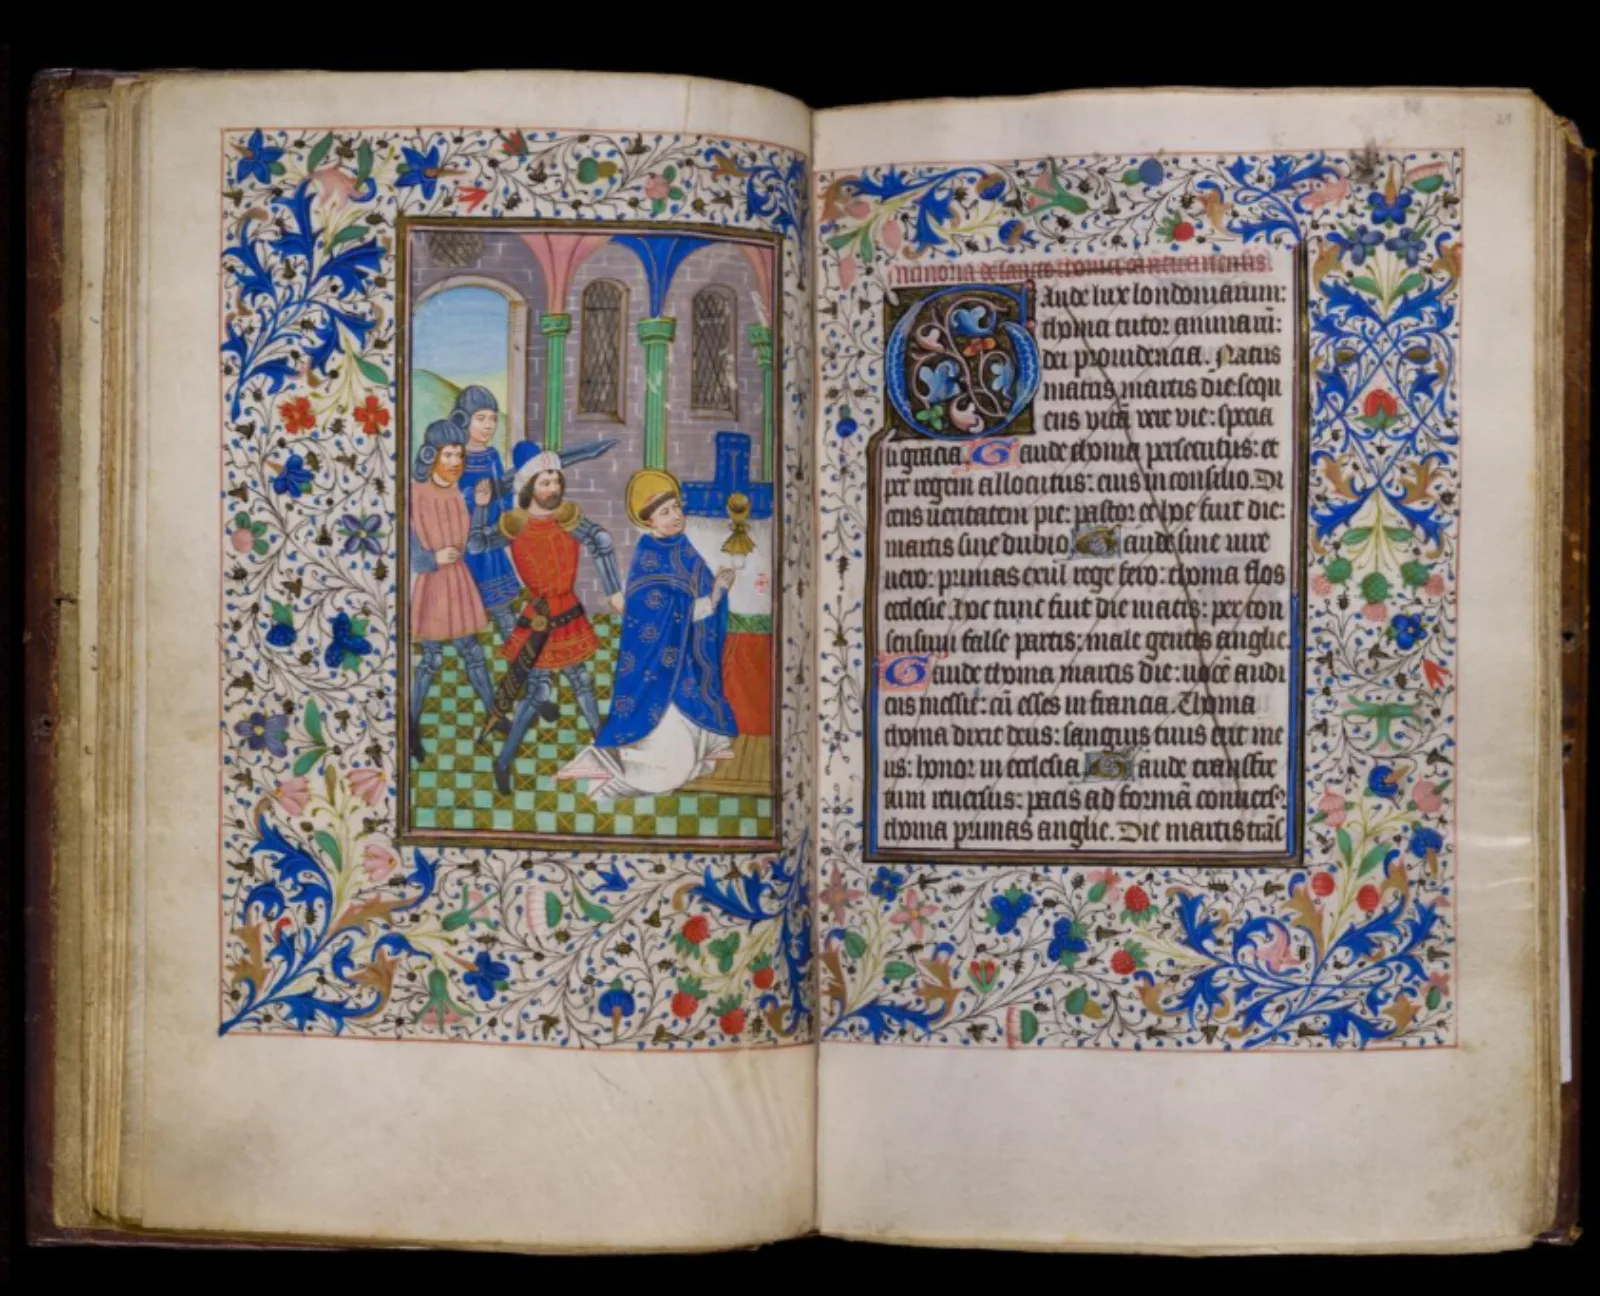 Memoria de sancto thoma cantuariensis.
Gaude lux londoniarum:
thoma tutor animarū:
dei prouidencia. Natus
matris martis die sequ
ens vitā vere vie: specia
li gracia. Gaude thoma persecutus: et
per regem allocutus: eius in consilio. Di
cens ueritatem pie: pastor et hoc fuit die:
martis sine dubio. Gaude sine
uero: primas exul rege fero: thoma flos
ecclesie. Hoc tunc fuit die martis: per con
sensum false partis: male gentis anglie.
Gaude thoma martis die: uocē audi
ens messie: cū esses in francia. Thoma
thoma dixit deus: sanguis tuus erit me
us: honor in ecclesia. Gaude transfre
tum reuersus: pacis ad formā conuers
thoma primas anglie. Die martis trās